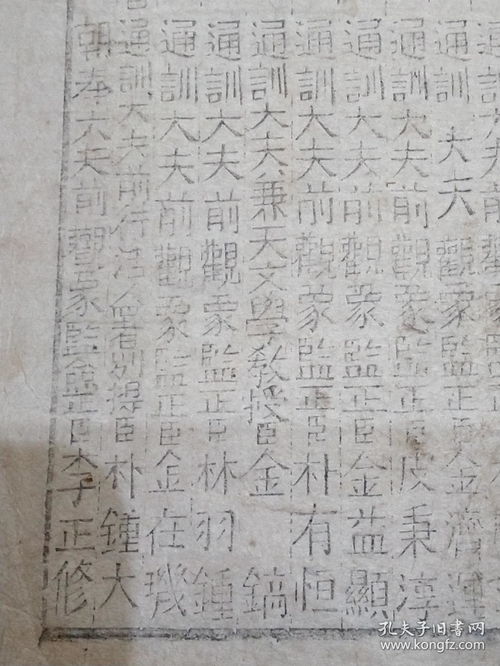 通訓
通訓大夫觀象監正臣金濟
通訓大夫前觀象監正臣皮秉淳
通訓大夫前觀象監正臣金益顯
通訓大夫前觀象監正臣朴有恒
通訓大夫兼天文學教授臣金鎬
通訓大夫前觀象監正臣林羽鍾
通訓大夫前觀象監正臣金在璣
通訓大夫前活人署別提臣朴鍾大
朝奉大夫前觀象監僉正臣李正修
孔夫子旧书网
www.kongfz.com